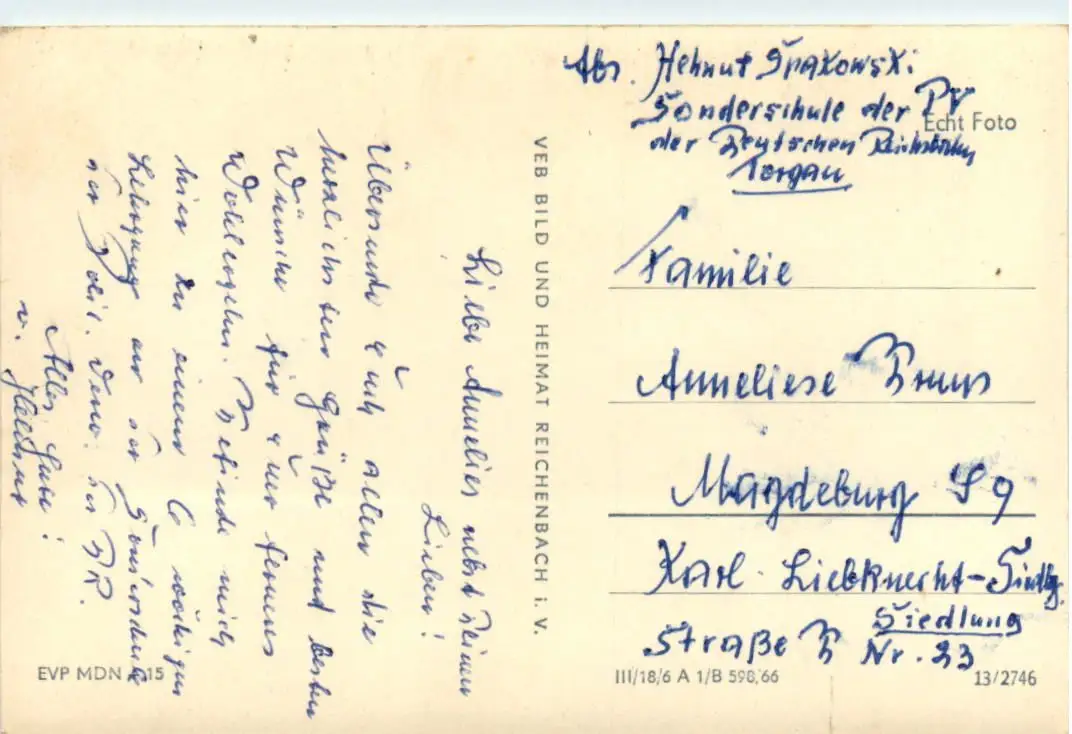 Liebe Annelies nebst Deinen
Lieben!
Übersende Euch allen die
herzlichsten Grüße und besten
Wünsche für Euer ferneres
Wohlergehen. Befinde mich
hier zu einem 6 wöchigen
Lehrgang an der Sonderschule
der Polit. der DR.
Alles Gute!
v. Helmut
EVP MDN 0,15
VEB BILD UND HEIMAT REICHENBACH i. V.
Abs. Helmut Spakowski
Sonderschule der PV
Echt Foto
der Deutschen Reichsbahn
Torgau
Familie
Anneliese Bruns
Magdeburg S 9
Karl-Liebknecht-Siedlg.
Siedlung
Straße B Nr. 23
III/18/6 A 1/B 598/66
13/2746